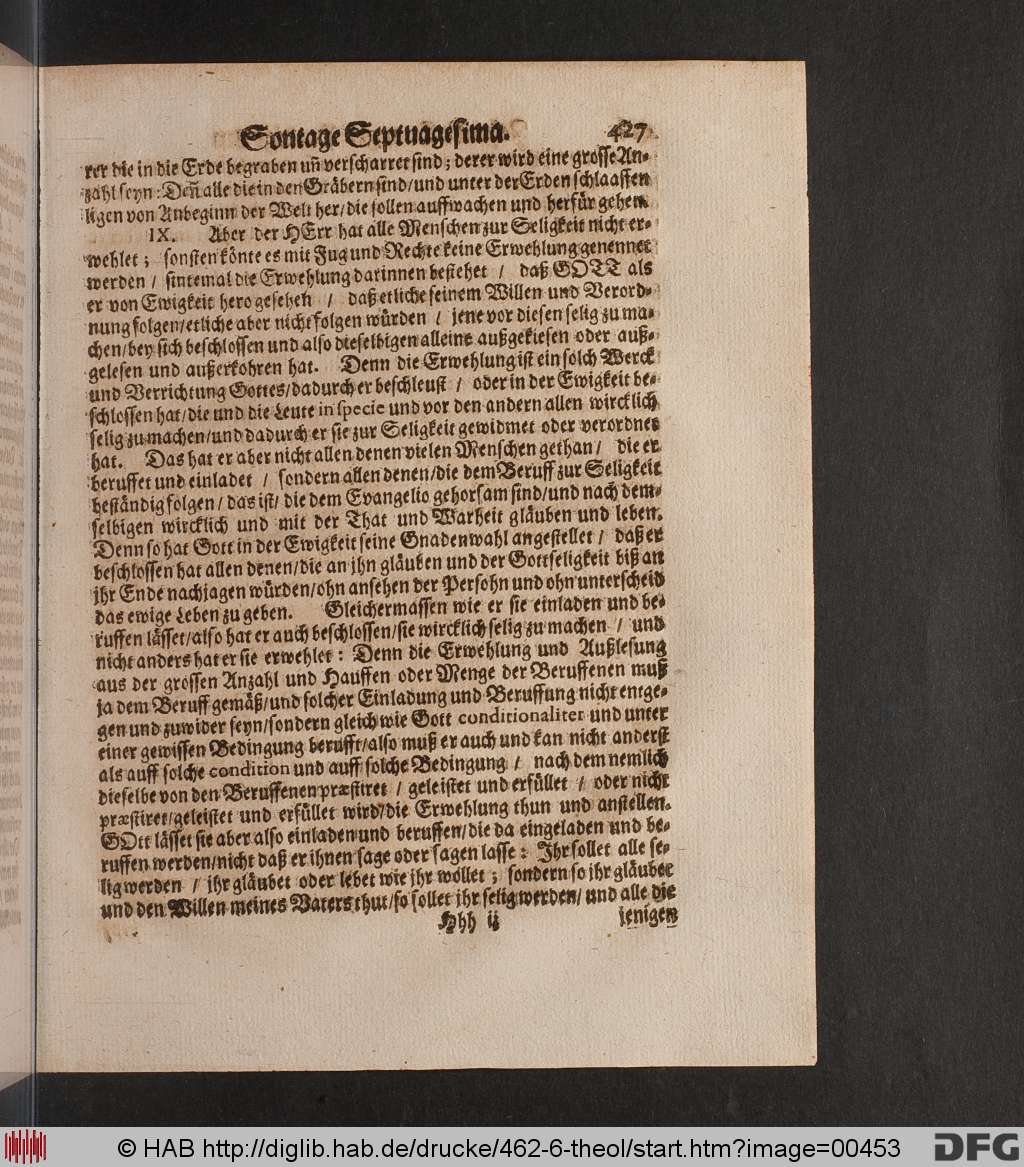 Sontage Septuagesima. 427
rer die in die Erde begraben uñ verscharret sind; derer wird eine grosse An-
zahl seyn: Deñ alle die in den Gräbern sind/und unter der Erden schlaaffen
ligen von Anbeginn der Welt her/die sollen auffwachen und herfür gehen.
IX. Aber der HErr hat alle Menschen zur Seligkeit nicht er-
wehlet; sonsten könte es mit Fug und Rechte keine Erwehlung genennet
werden / sintemal die Erwehlung darinnen bestehet / daß GOTT als
er von Ewigkeit hero gesehen / daß etliche seinem Willen und Verord-
nung folgen/etliche aber nicht folgen würden / jene vor diesen selig zu ma-
chen/bey sich beschlossen und also dieselbigen alleine außgekiesen oder auß-
gelesen und außerkohren hat. Denn die Erwehlung ist ein solch Werck
und Verrichtung Gottes/dadurch er beschleust / oder in der Ewigkeit be-
schlossen hat/die und die Leute in specie und vor den andern allen wircklich
selig zu machen/und dadurch er sie zur Seligkeit gewidmet oder verordnet
hat. Das hat er aber nicht allen denen vielen Menschen gethan / die er
beruffet und einladet / sondern allen denen/die dem Beruff zur Seligkeit
beständig folgen/ das ist/ die dem Evangelio gehorsam sind/und nach dem-
selbigen wircklich und mit der That und Warheit gläuben und leben.
Denn so hat Gott in der Ewigkeit seine Gnadenwahl angestellet / daß er
beschlossen hat allen denen/die an jhn gläuben und der Gottseligkeit biß an
jhr Ende nachjagen würden/ohn ansehen der Persohn und ohn unterscheid
das ewige Leben zu geben. Gleichermassen wie er sie einladen und be-
ruffen lässet/also hat er auch beschlossen/sie wircklich selig zu machen / und
nicht anders hat er sie erwehlet: Denn die Erwehlung und Außlesung
aus der grossen Anzahl und Hauffen oder Menge der Beruffenen muß
ja dem Beruff gemäß/und solcher Einladung und Beruffung nicht entge-
gen und zuwider seyn/sondern gleich wie Gott conditionaliter und unter
einer gewissen Bedingung berufft/also muß er auch und kan nicht anderst
als auff solche condition und auff solche Bedingung / nach dem nemlich
dieselbe von den Beruffenen præstiret / geleistet und erfüllet / oder nicht
præstiret/geleistet und erfüllet wird/die Erwehlung thun und anstellen.
GOtt lässet sie aber also einladen und beruffen/die da eingeladen und be-
ruffen werden/nicht daß er ihnen sage oder sagen lasse: Jhr sollet alle se-
lig werden / jhr gläubet oder lebet wie jhr wollet; sondern so jhr gläubet
und den Willen meines Vaters thut/so sollet jhr selig werden/ und alle die
Hhh ij jenigen
© HAB http://diglib.hab.de/drucke/462-6-theol/start.htm?image=00453
DFG